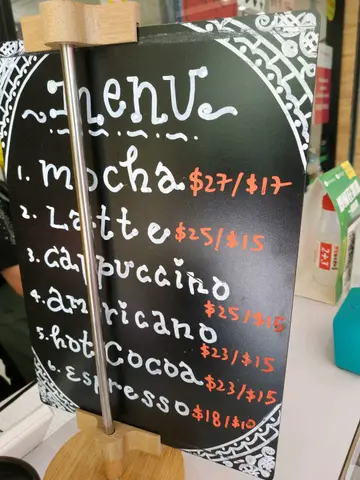 menu
1. mocha $27/$17
2. Latte $25/$15
3. cappuccino $25/$15
4. americano $23/$15
5. hot cocoa $23/$15
6. Espresso $18/$10
2+3